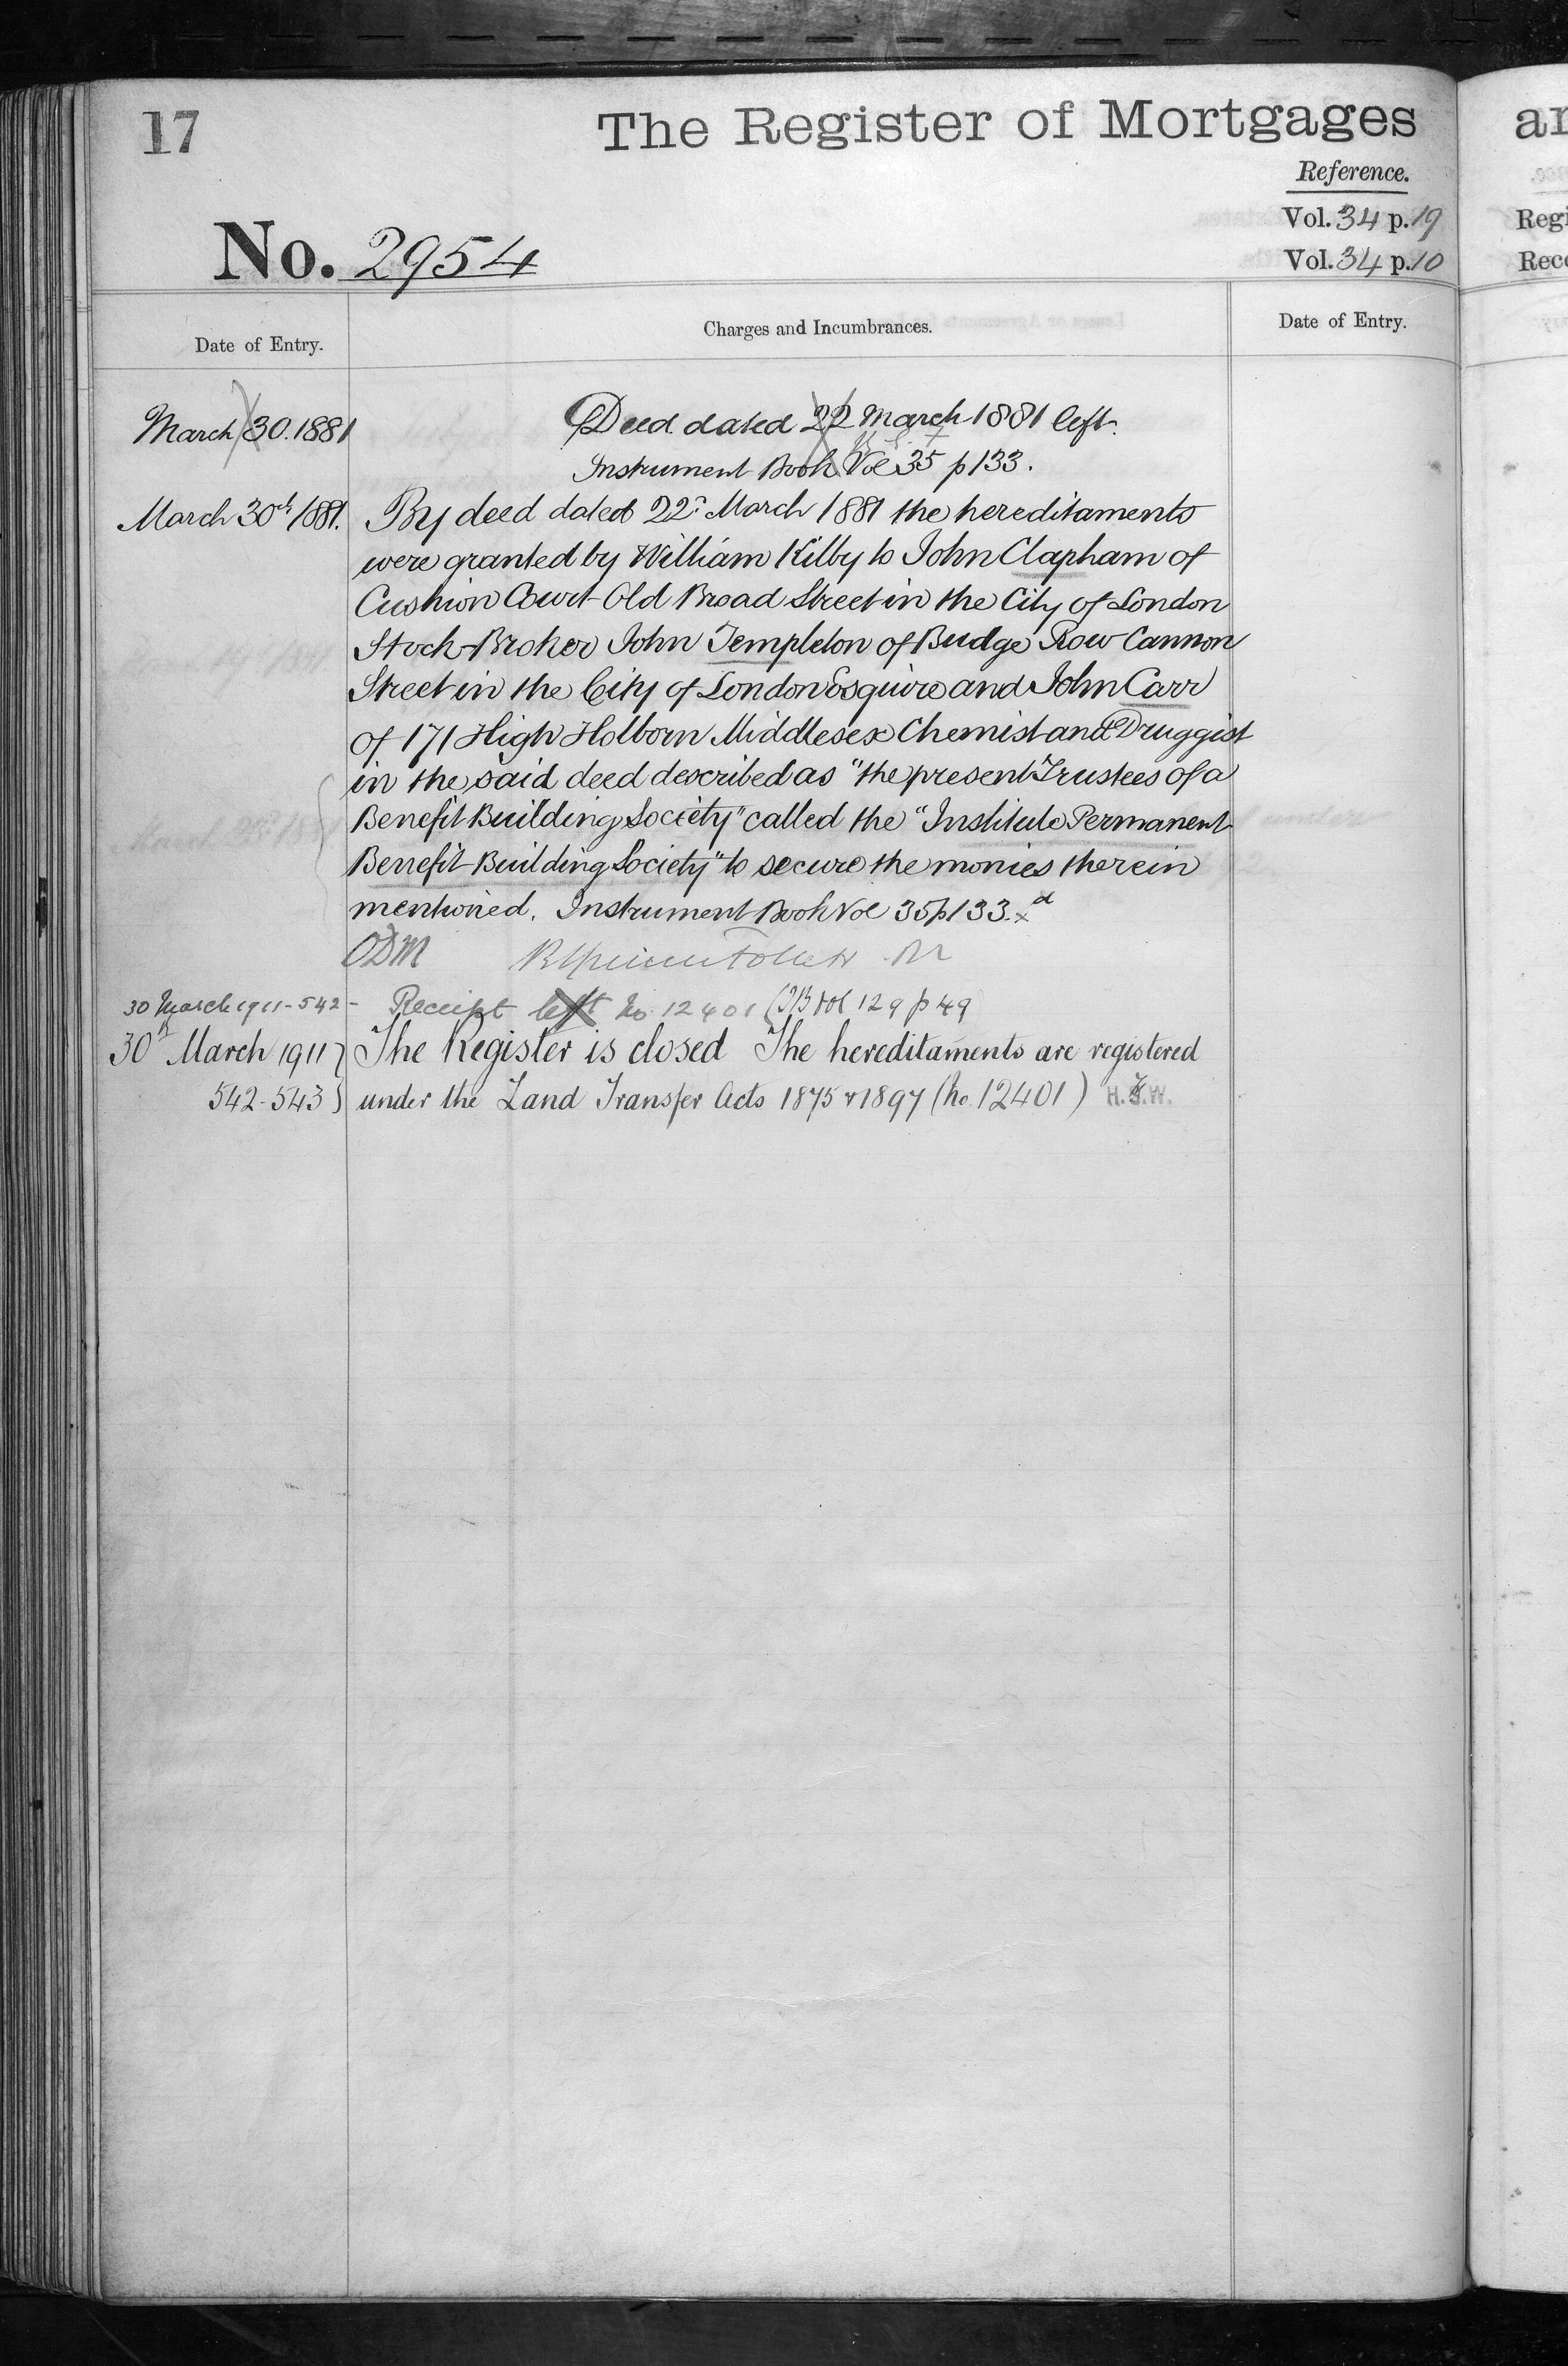 17
The Register of Mortgages
Reference.
Vol. 34 p. 19
Vol. 34 p. 10
No. 2954
Date of Entry.
Charges and Incumbrances.
Date of Entry.
March 30. 1881
Deed dated 22 March 1881 left.
Instrument Book Vol 35 p 133.
March 30th 1881.
By deed dated 22d March 1881 the hereditaments
were granted by William Kilby to John Clapham of
Cushion Court Old Broad Street in the City of London
Stock-Broker John Templeton of Budge Row Cannon
Street in the City of London Esquire and John Carr
of 171 High Holborn Middlesex Chemist and Druggist
in the said deed described as "the present Trustees of a
Benefit Building Society" called the "Institute Permanent
Benefit Building Society" to secure the monies therein
mentioned. Instrument Book Vol 35 p 133.
ODM
30 March 1911-542-
Receipt left No 12401 (IB Vol 129 p 49
30th March 1911
542-543
The Register is closed The hereditaments are registered
under the Land Transfer Acts 1875 & 1897 (No. 12401)
ar
Regi
Reco